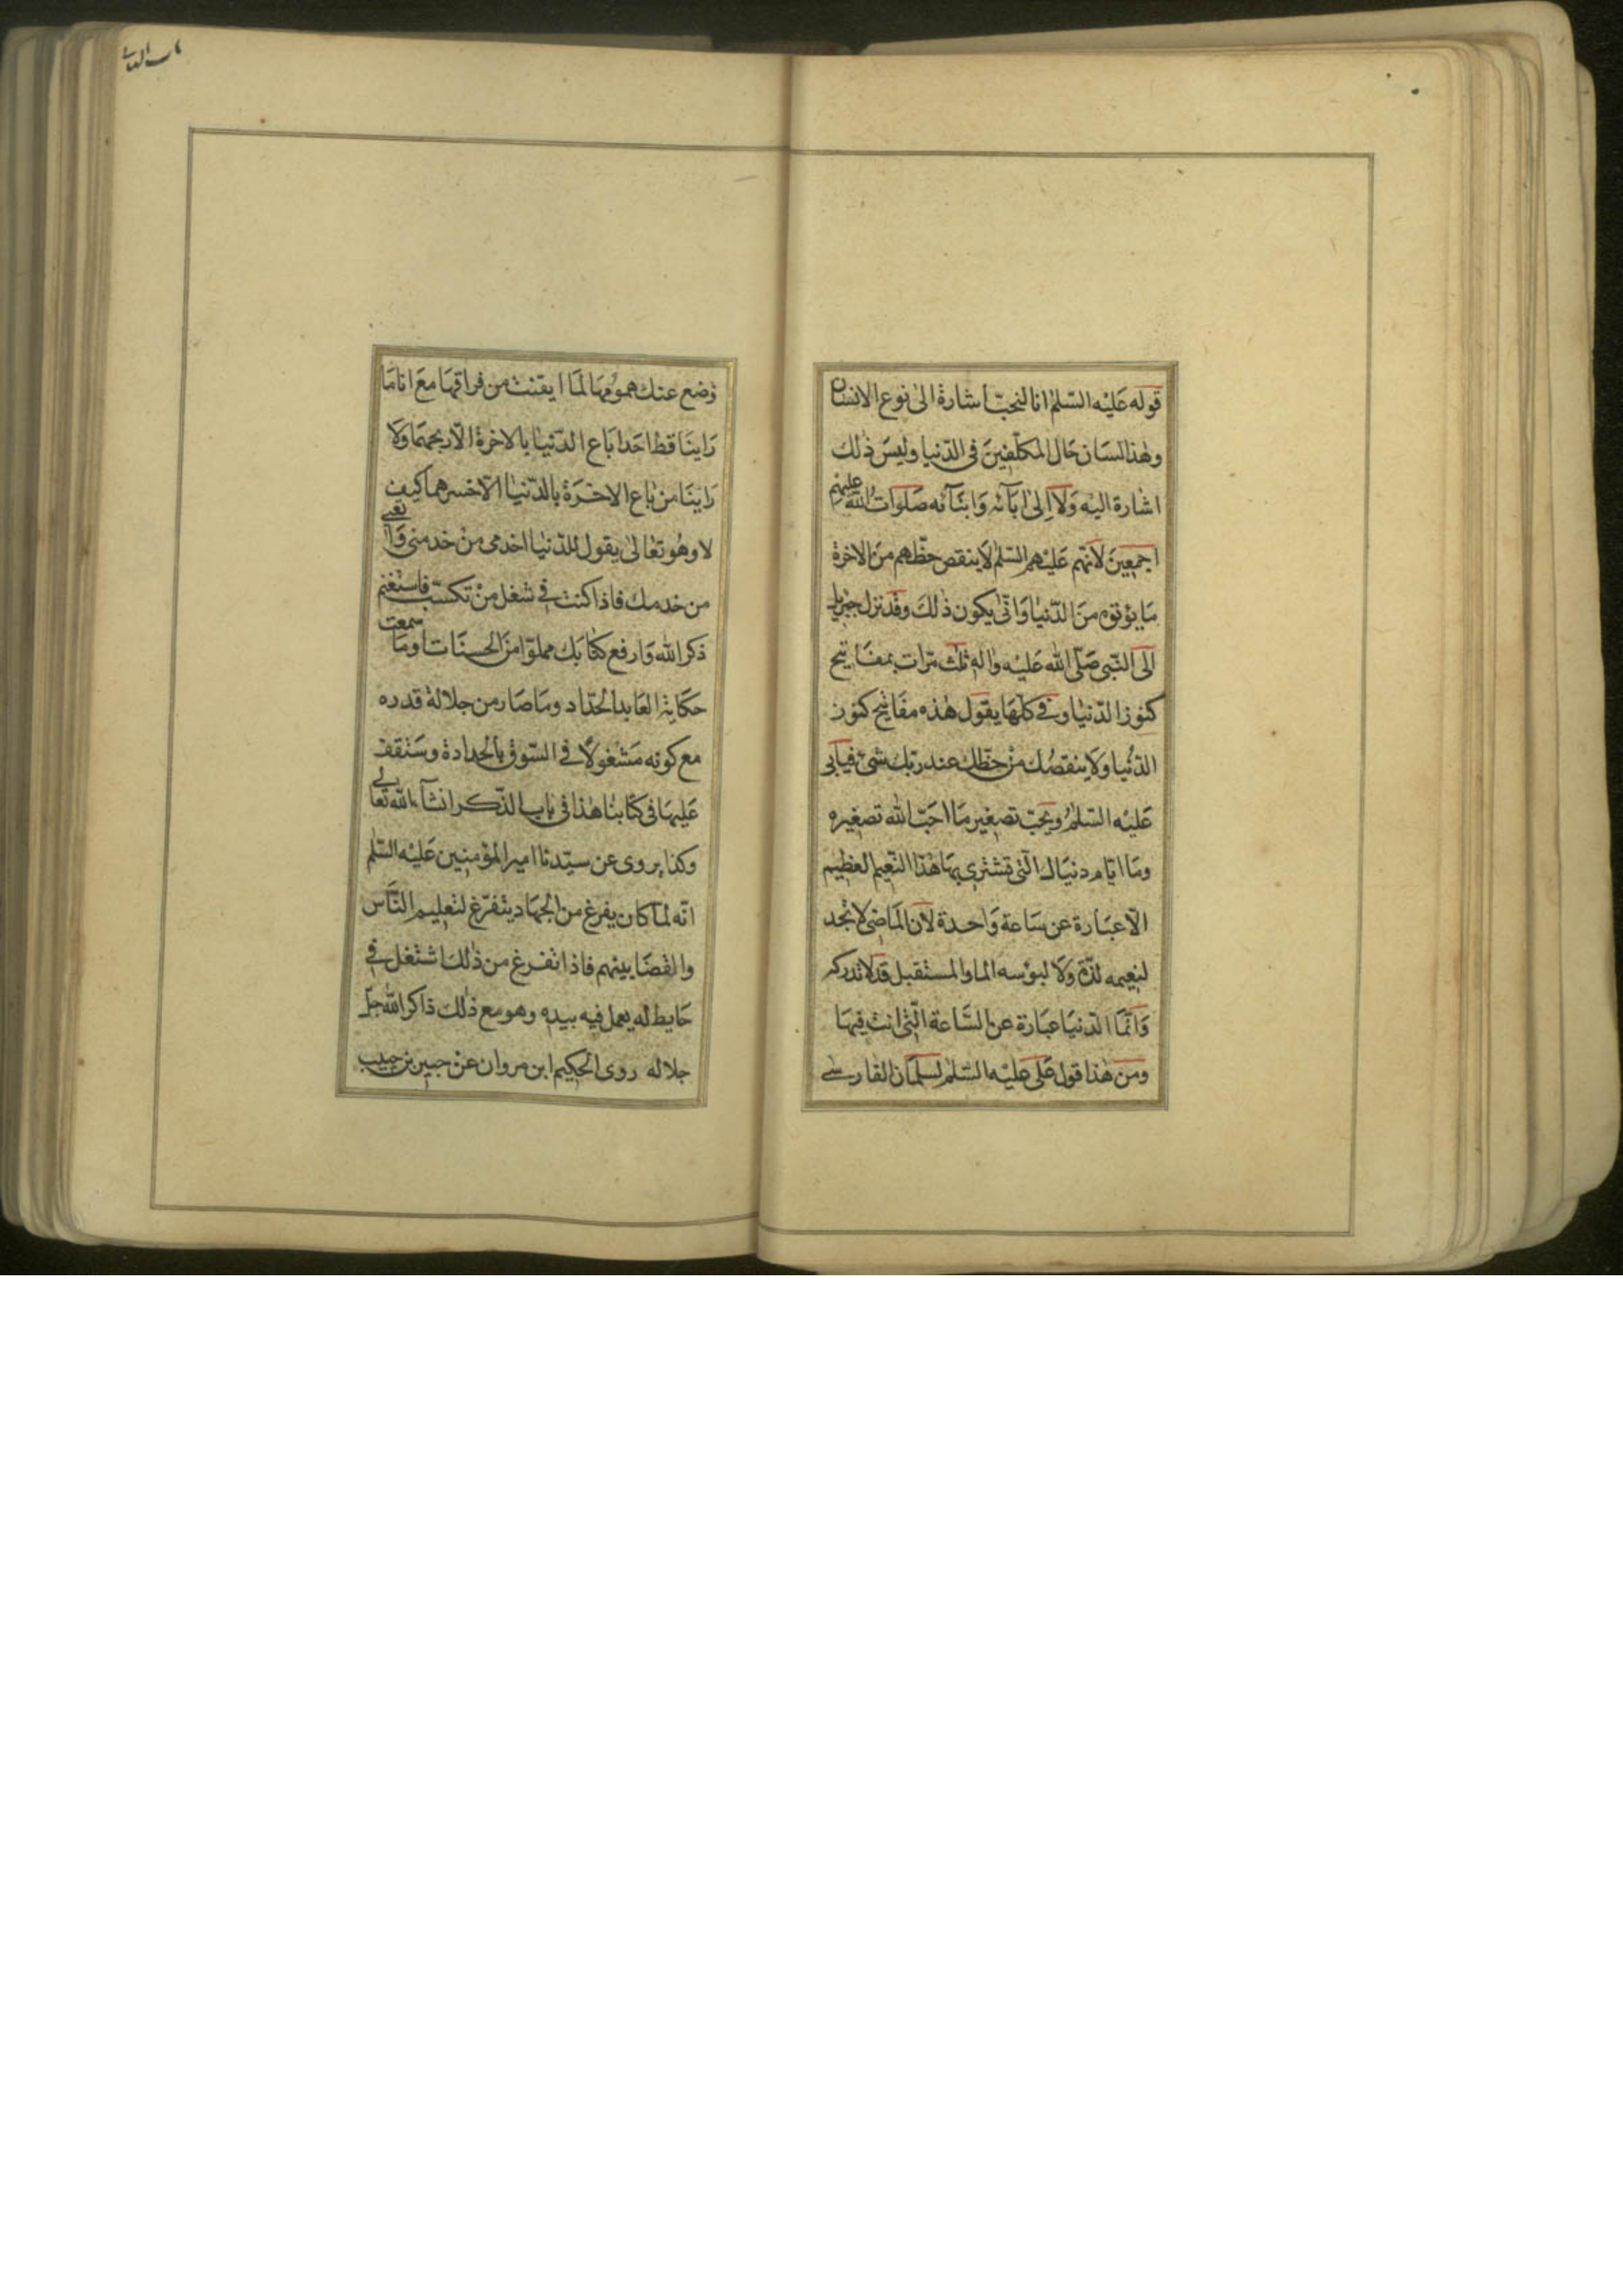 قوله عليه السّلم انا لنحبّ اشارة الى نوع الانسان
وهذا لسان حال المكلّفين فى الدّنيا وليس ذلك
اشارة اليه ولا الى ابآئه وابنآئه صلوات الله عليهم
اجمعين لانّهم عليهم السّلم لا ينقص حظّهم من الاخرة
ما يؤتوه من الدّنيا وانّى يكون ذلك وقد نزل جبريل
الى النّبى صلّى الله عليه واله ثلث مرّات بمفاتيح
كنوز الدّنيا وفى كلّها يقول هذه مفاتيح كنوز
الدّنيا ولا ينقصك من حظّك عند ربّك شىء فيأبى
عليه السّلم ويحبّ تصغير ما احبّ الله تصغيره
وما ايّام دنياك الّتى تشترى بها هذا النّعيم العظيم
الّا عبارة عن ساعة واحدة لانّ الماضى لا تجد
لنعيمه لذّة ولا لبؤسه الما والمستقبل قد لا تدركه
وانّما الدّنيا عبارة عن السّاعة الّتى انت فيها
ومن هذا قول على عليه السّلم لسلمان الفارسى
وضع عنك همومها لما ايقنت من فراقها مع انا ما
راينا قط احدا باع الدّنيا بالاخرة الّا ربحهما ولا
راينا من باع الاخرة بالدّنيا الّا خسرهما كيف
لا وهو تعالى يقول للدّنيا اخدمى من خدمنى واتعبى
من خدمك فاذا كنت فى شغل من تكسّب فاستغنم
ذكر الله وارفع كتابك مملوّا من الحسنات اوما سمعت
حكاية العابد الحدّاد وما صار من جلالة قدره
مع كونه مشغولا فى السّوق بالحدادة وستقف
عليها فى كتابنا هذا فى باب الذّكر انشآء الله تعالى
وكذا يروى عن سيّدنا امير المؤمنين عليه السّلم
انّه لمّا كان يفرغ من الجهاد يتفرّغ لتعليم النّاس
والقضا بينهم فاذا تفرغ من ذلك اشتغل فى
حايط له يعمل فيه بيده وهو مع ذلك ذاكر الله جلّ
جلاله روى الحكيم ابن مروان عن جبير بن حبيب